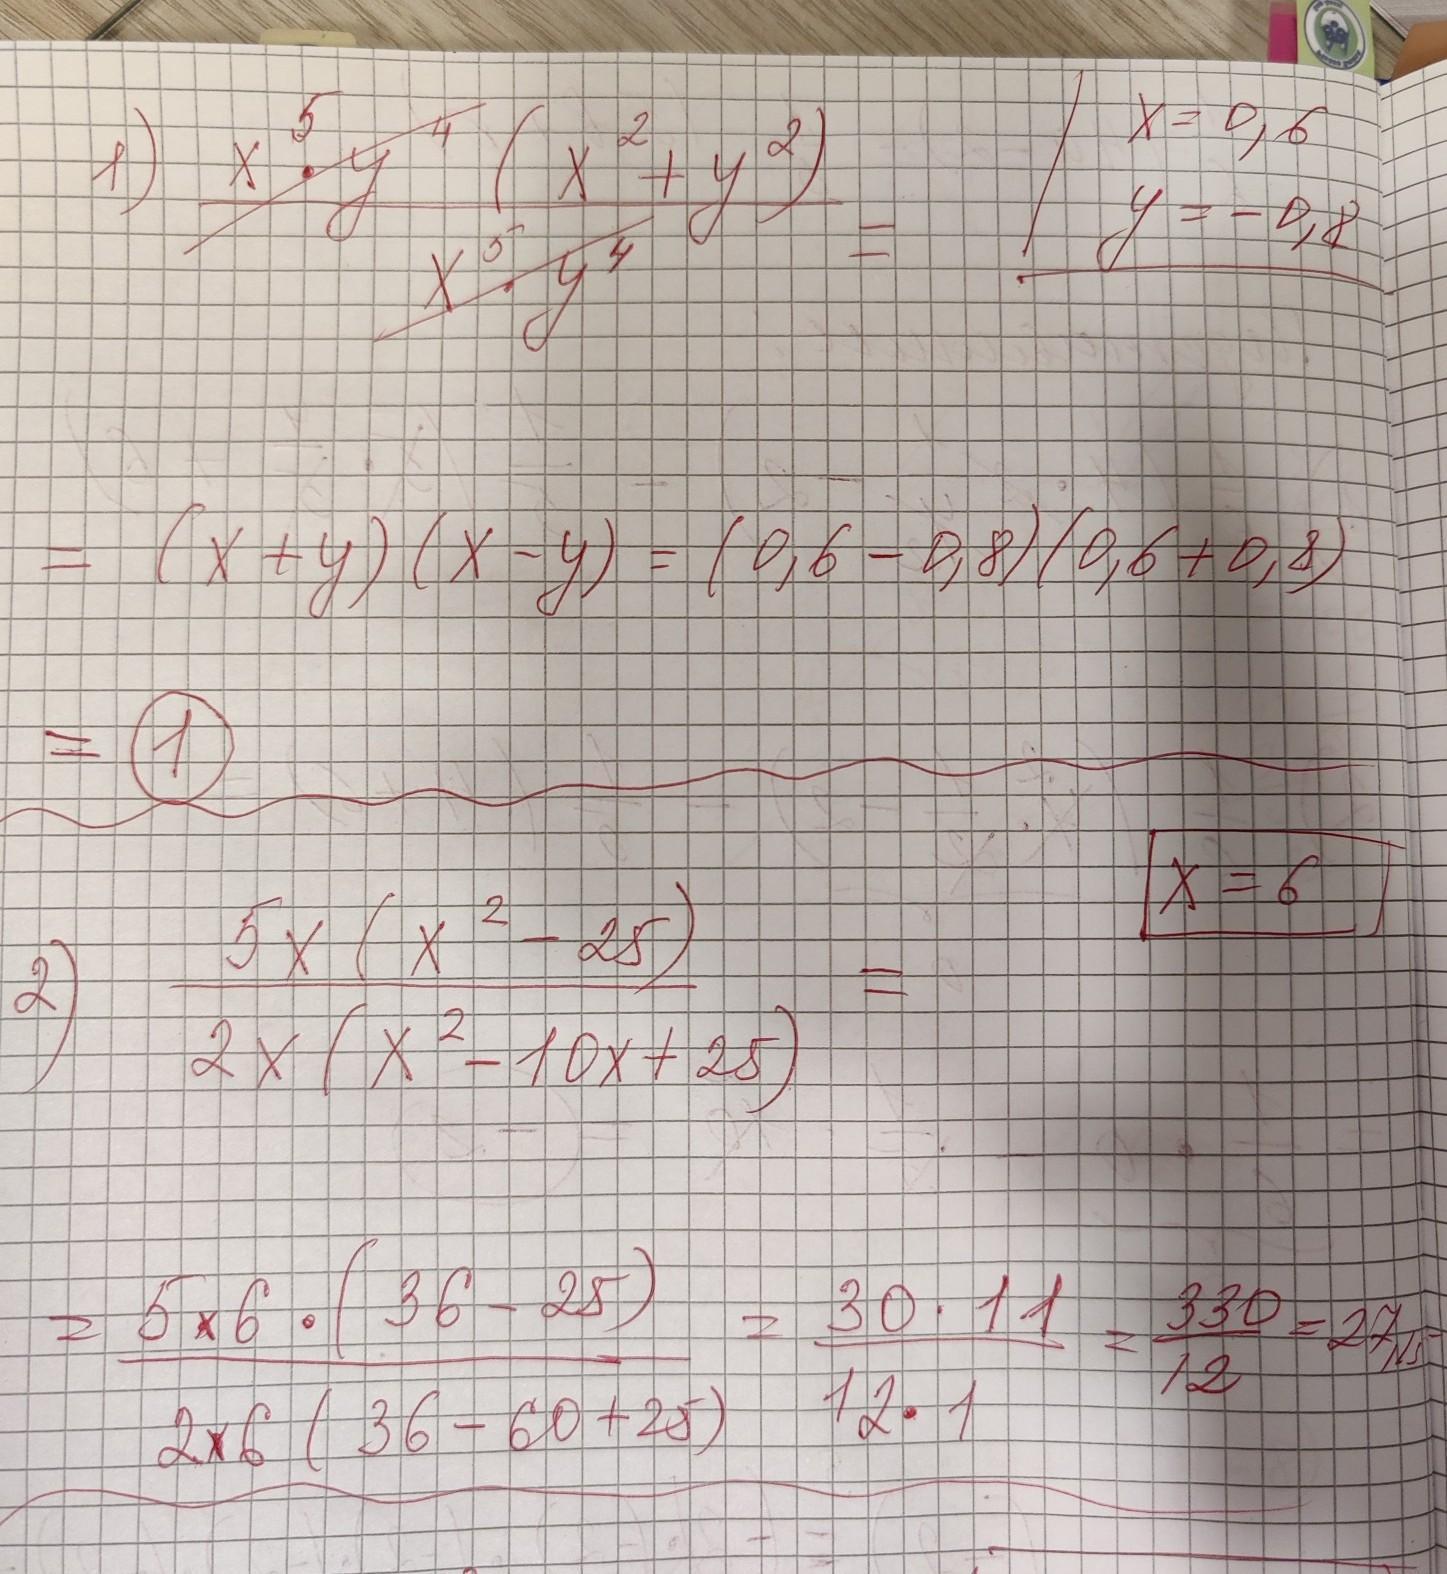 1) x⁵·y⁴ (x² + y²) / x⁵·y⁴ =
x = 0,6
y = -0,8
= (x + y)(x - y) = (0,6 - 0,8)(0,6 + 0,8)
= 1
x = 6
2) 5x (x² - 25) / 2x (x² - 10x + 25) =
= 5×6·(36 - 25) / 2×6 (36 - 60 + 25) = 30·11 / 12·1 = 330 / 12 = 27,